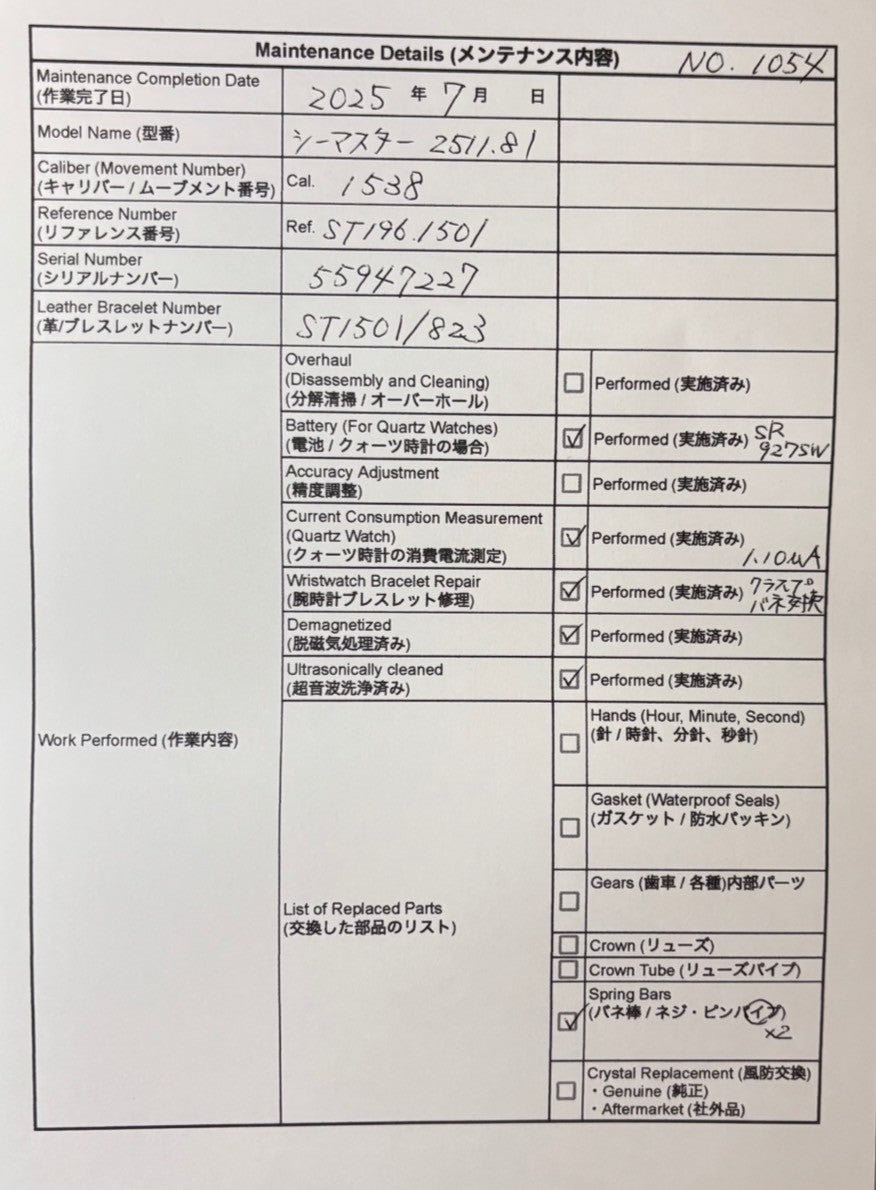 Maintenance Details (メンテナンス内容) NO. 1054
Maintenance Completion Date
(作業完了日)
2025 年 7 月 日
Model Name (型番)
シーマスター 2511.81
Caliber (Movement Number)
(キャリバー / ムーブメント番号)
Cal. 1538
Reference Number
(リファレンス番号)
Ref. ST196.1501
Serial Number
(シリアルナンバー)
55947227
Leather Bracelet Number
(革/ブレスレットナンバー)
ST1501/823
Work Performed (作業内容)
Overhaul
(Disassembly and Cleaning)
(分解清掃 / オーバーホール)
Performed (実施済み)
Battery (For Quartz Watches)
(電池 / クォーツ時計の場合)
Performed (実施済み) SR
927SW
Accuracy Adjustment
(精度調整)
Performed (実施済み)
Current Consumption Measurement
(Quartz Watch)
(クォーツ時計の消費電流測定)
Performed (実施済み)
1.10uA
Wristwatch Bracelet Repair
(腕時計ブレスレット修理)
Performed (実施済み) クラスプ
バネ交換
Demagnetized
(脱磁気処理済み)
Performed (実施済み)
Ultrasonically cleaned
(超音波洗浄済み)
Performed (実施済み)
List of Replaced Parts
(交換した部品のリスト)
Hands (Hour, Minute, Second)
(針 / 時針、分針、秒針)
Gasket (Waterproof Seals)
(ガスケット / 防水パッキン)
Gears (歯車 / 各種)内部パーツ
Crown (リューズ)
Crown Tube (リューズパイプ)
Spring Bars
(バネ棒 / ネジ・ピンパイプ)
x2
Crystal Replacement (風防交換)
・Genuine (純正)
・Aftermarket (社外品)